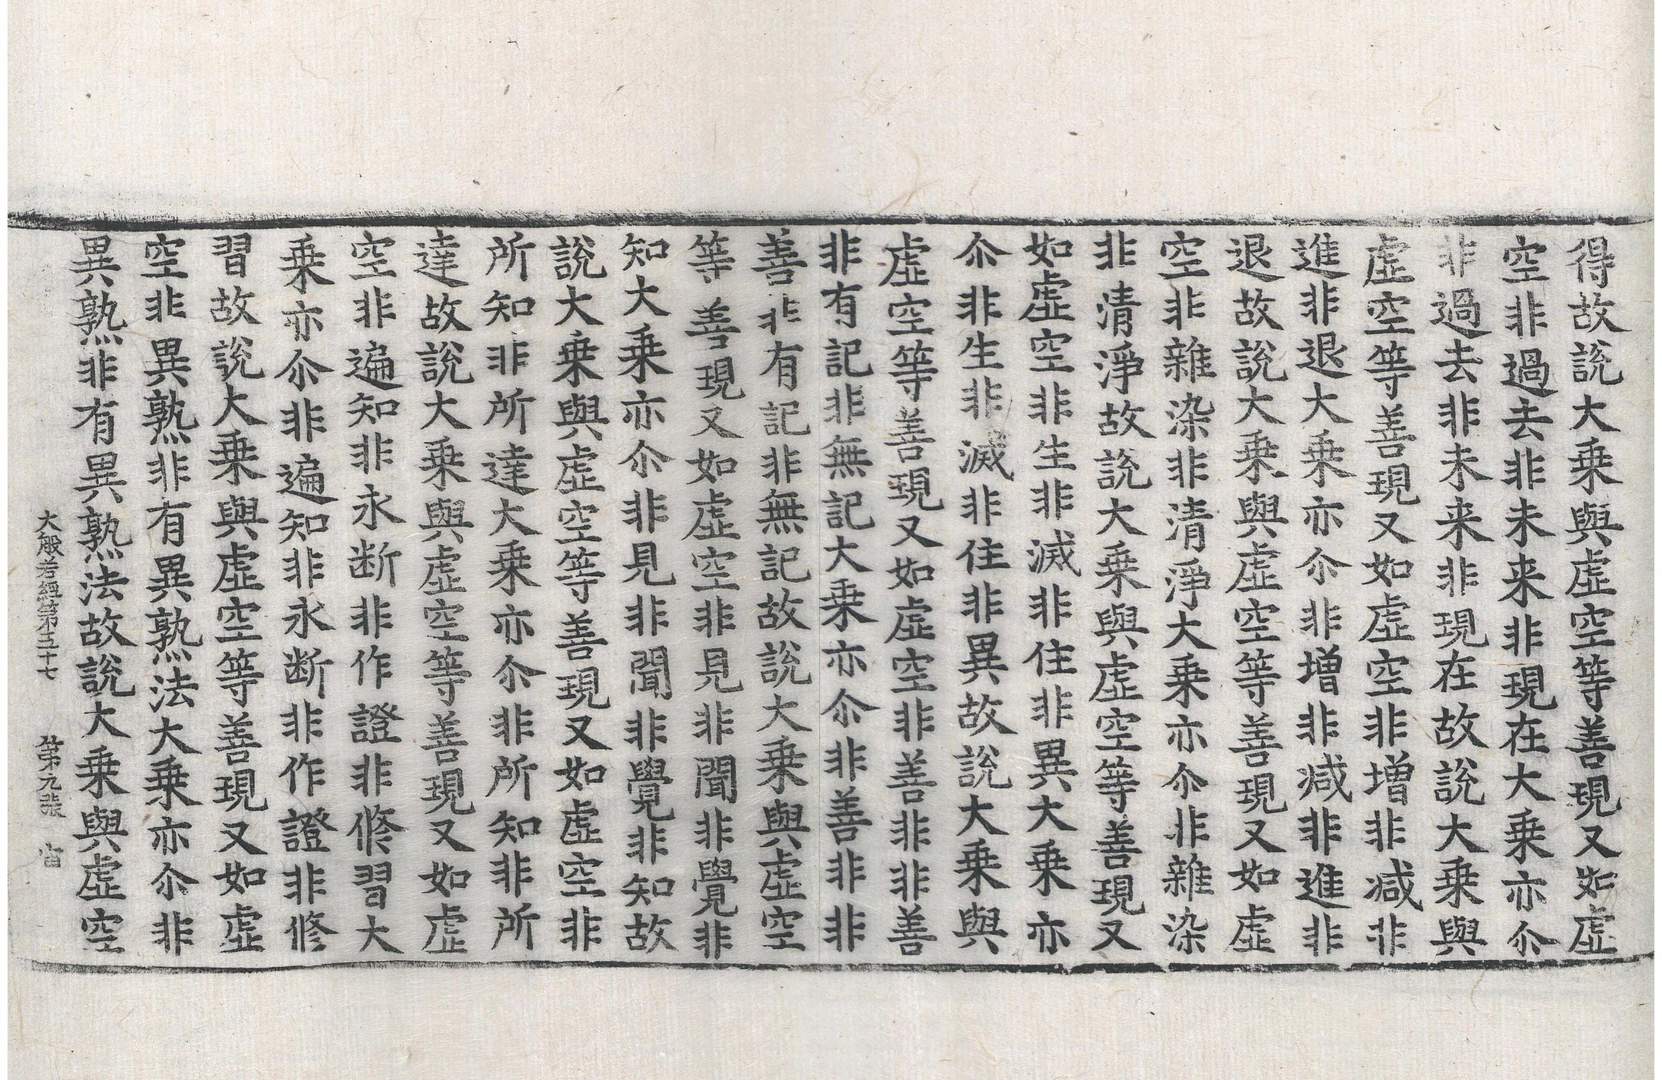 得故說大乗與虛空等善現又如虛
空非過去非未来非現在大乗亦尒
非過去非未来非現在故說大乗與
虛空等善現又如虛空非增非減非
進非退大乗亦尒非增非減非進非
退故說大乗與虛空等善現又如虛
空非雜染非清淨大乗亦尒非雜染
非清淨故說大乗與虛空等善現又
如虛空非生非滅非住非異大乗亦
尒非生非滅非住非異故說大乗與
虛空等善現又如虛空非善非非善
非有記非無記大乗亦尒非善非非
善非有記非無記故說大乗與虛空
等善現又如虛空非見非聞非覺非
知大乗亦尒非見非聞非覺非知故
說大乗與虛空等善現又如虛空非
所知非所達大乗亦尒非所知非所
達故說大乗與虛空等善現又如虛
空非遍知非永断非作證非修習大
乗亦尒非遍知非永断非作證非修
習故說大乗與虛空等善現又如虛
空非異熟非有異熟法大乗亦尒非
異熟非有異熟法故說大乗與虛空
大般若經第五十七 第九張 宙